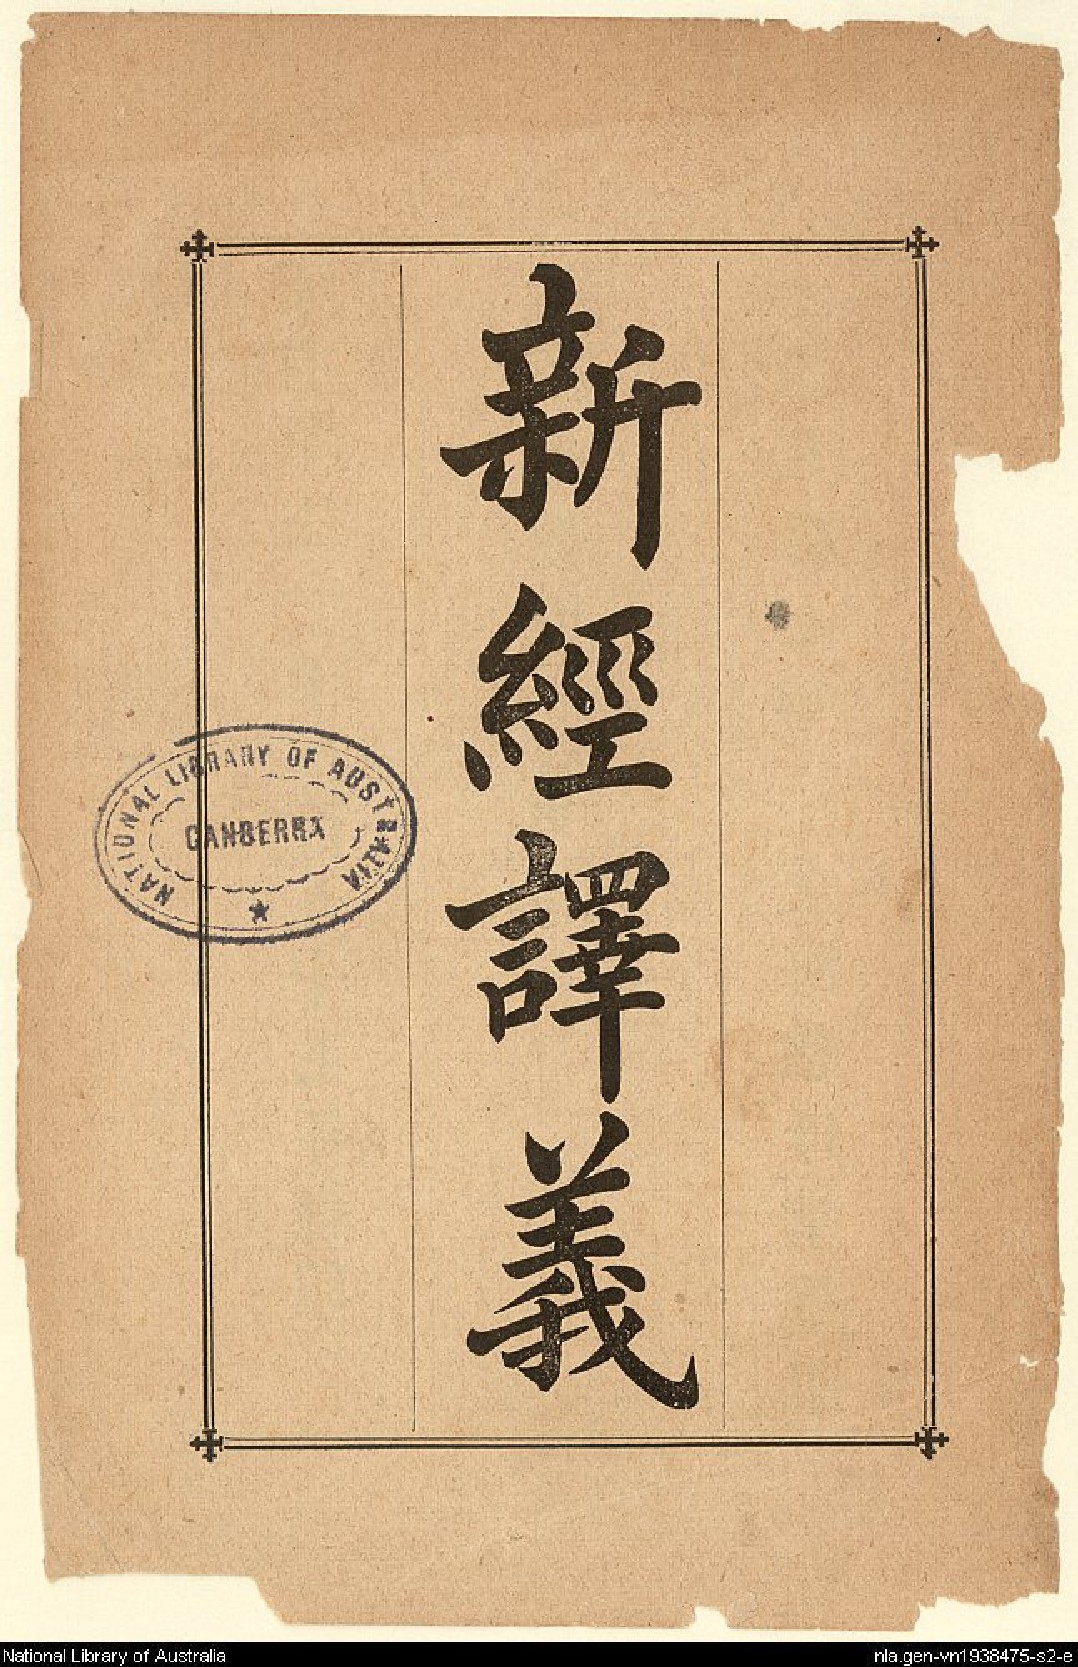 新經譯義
NATIONAL LIBRARY OF AUSTRALIA
CANBERRA
National Library of Australia
nla.gen-vn1938475-s2-e